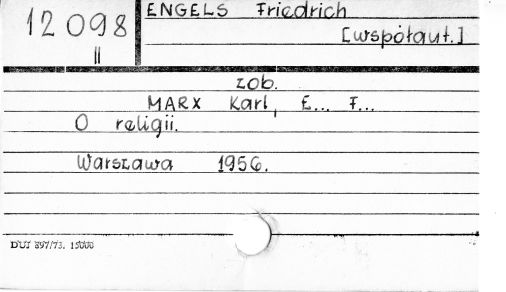 12 098
II
ENGELS Friedrich
[współaut.]
zob.
MARX Karl, E... F...
O religii.
Warszawa 1956.
DUJ 897/73. 15000